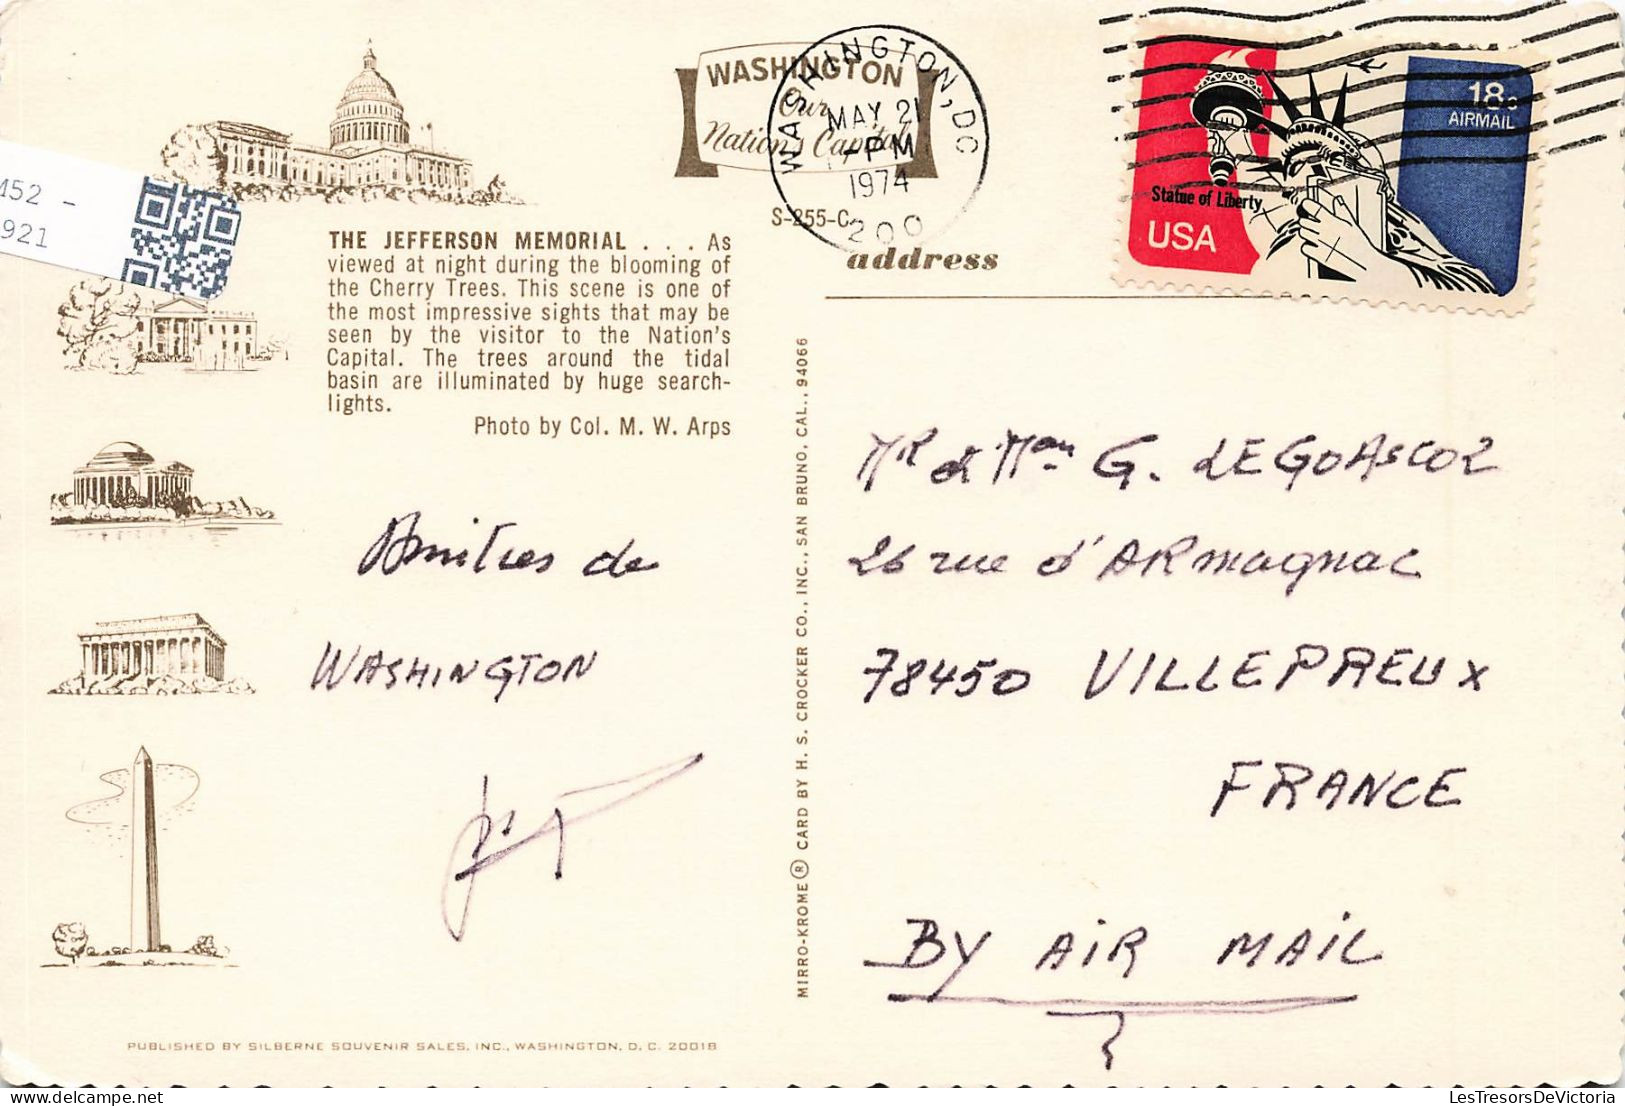 M52 -
921
WASHINGTON
Our
Nation's Capital
WASHINGTON, DC
MAY 21
PM
1974
200
S-255-C
address
18c
AIRMAIL
Statue of Liberty
USA
THE JEFFERSON MEMORIAL . . . As
viewed at night during the blooming of
the Cherry Trees. This scene is one of
the most impressive sights that may be
seen by the visitor to the Nation's
Capital. The trees around the tidal
basin are illuminated by huge search-
lights.
Photo by Col. M. W. Arps
Amitiés de
WASHINGTON
MIRRO-KROME® CARD BY H. S. CROCKER CO., INC., SAN BRUNO, CAL., 94066
Mr & Mme G. LEGOASCOZ
26 rue d'ARmagnac
78450 VILLEPREUX
FRANCE
BY AIR MAIL
PUBLISHED BY SILBERNE SOUVENIR SALES, INC., WASHINGTON, D. C. 20018
LesTresorsDeVictoria